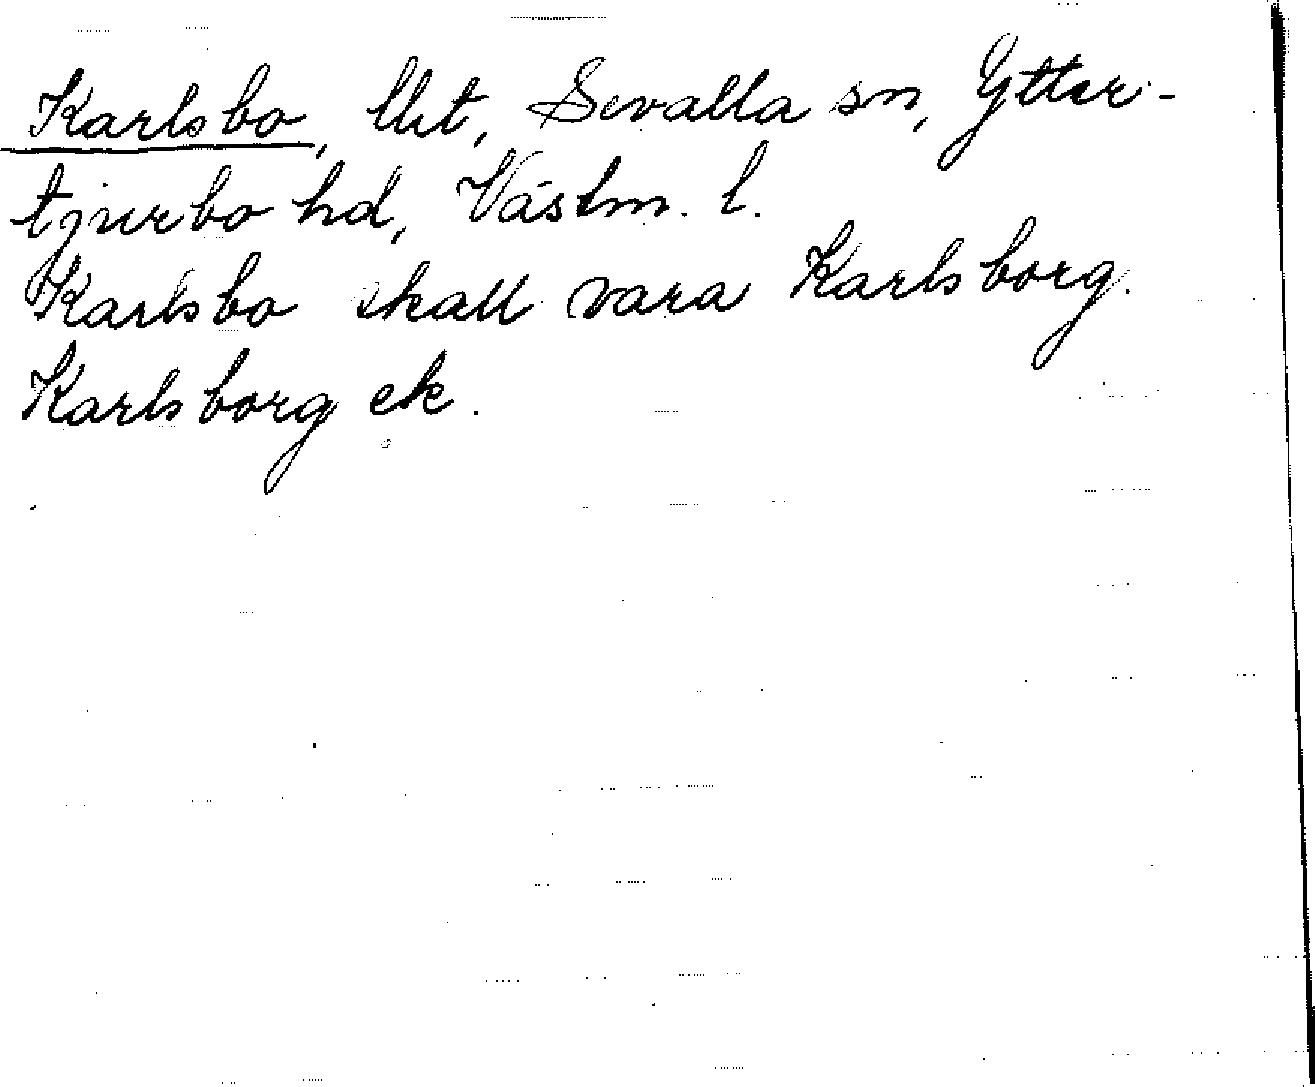 Karlsbo, lht, Sevalla sn, Ytter-
tjurbo hd, Västm. l.
Karlsbo skall vara Karlsborg.
Karlsborg ek.